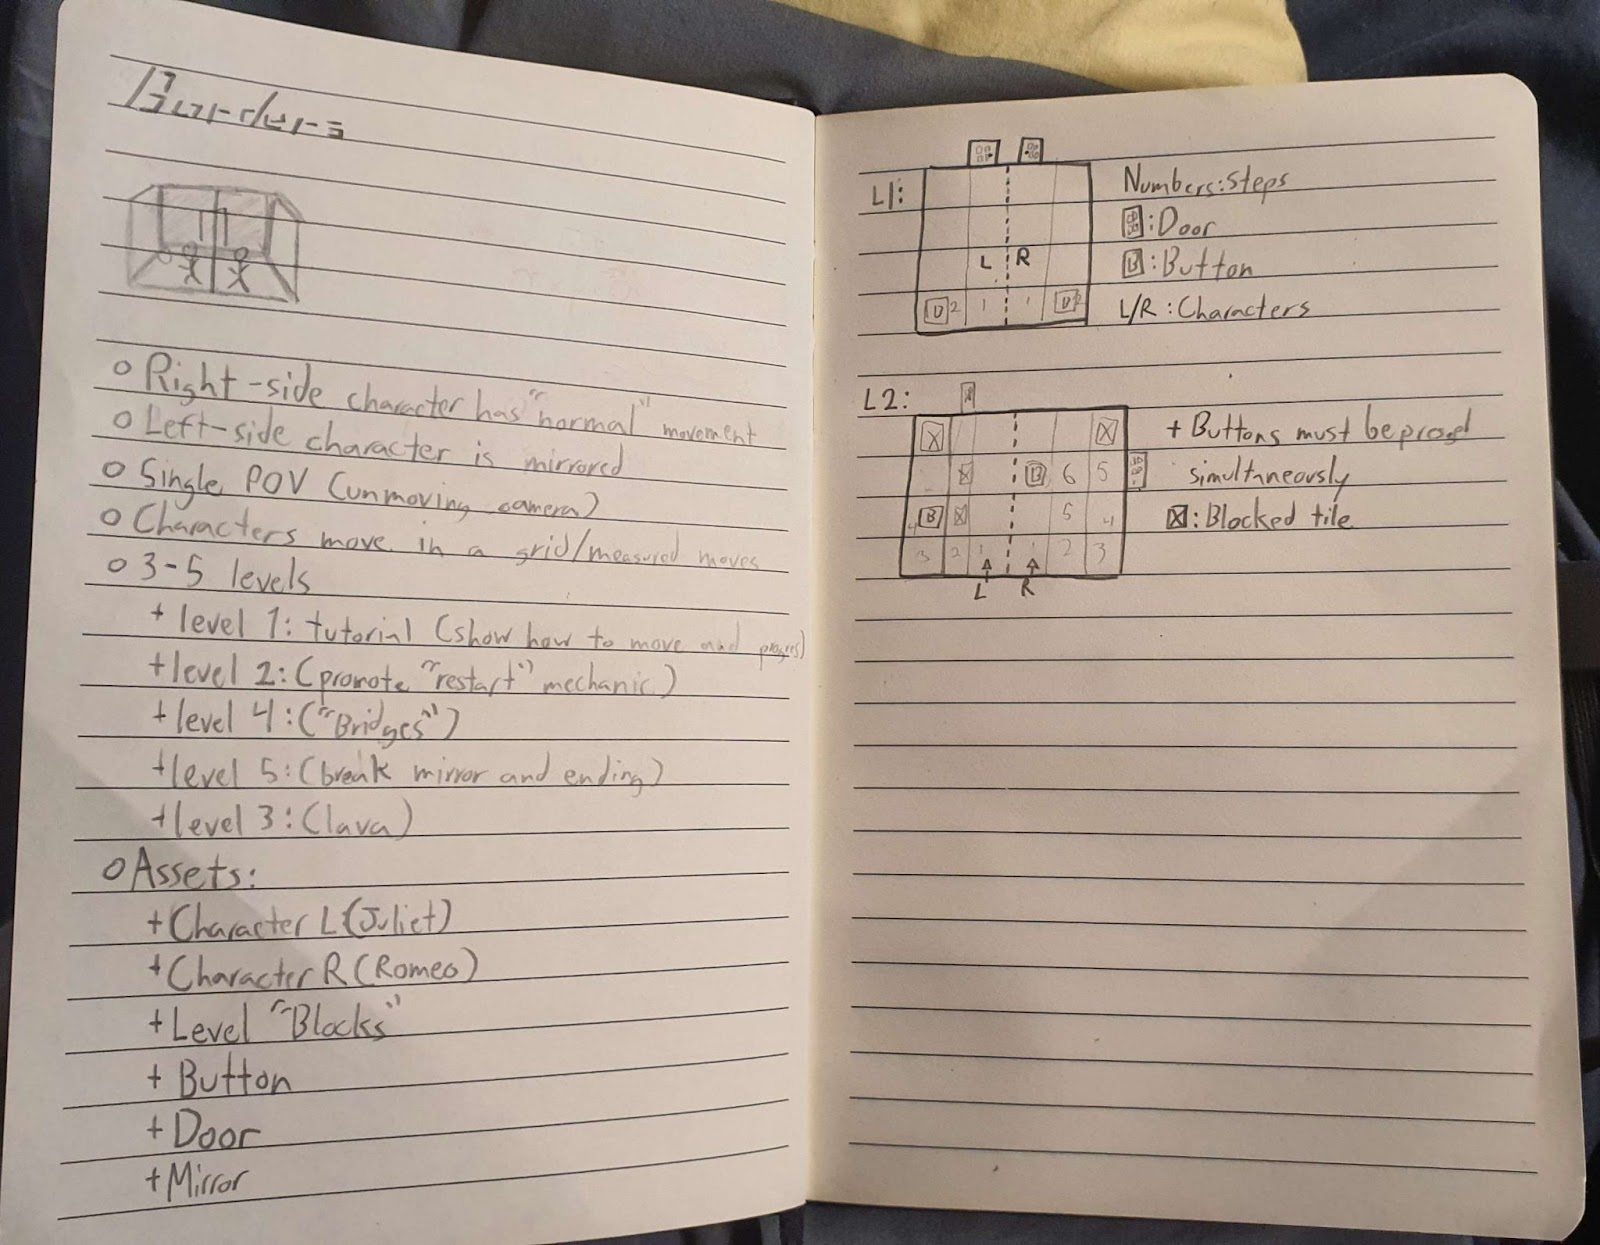 Borders
o Right-side character has "normal" movement
o Left-side character is mirrored
o Single POV (unmoving camera)
o Characters move in a grid/measured moves
o 3-5 levels
+ level 1: tutorial (show how to move and progress)
+ level 2: (promote "restart" mechanic)
+ level 4: ("Bridges")
+ level 5: (break mirror and ending)
+ level 3: (lava)
o Assets:
+ Character L (Juliet)
+ Character R (Romeo)
+ Level "Blocks"
+ Button
+ Door
+ Mirror
L1:
L R
2 1 1
Numbers: Steps
: Door
B : Button
L/R : Characters
L2:
X X
X B 6 5
4 B X 5 4
3 2 1 1 2 3
L R
+ Buttons must be
simultaneously
X : Blocked tile